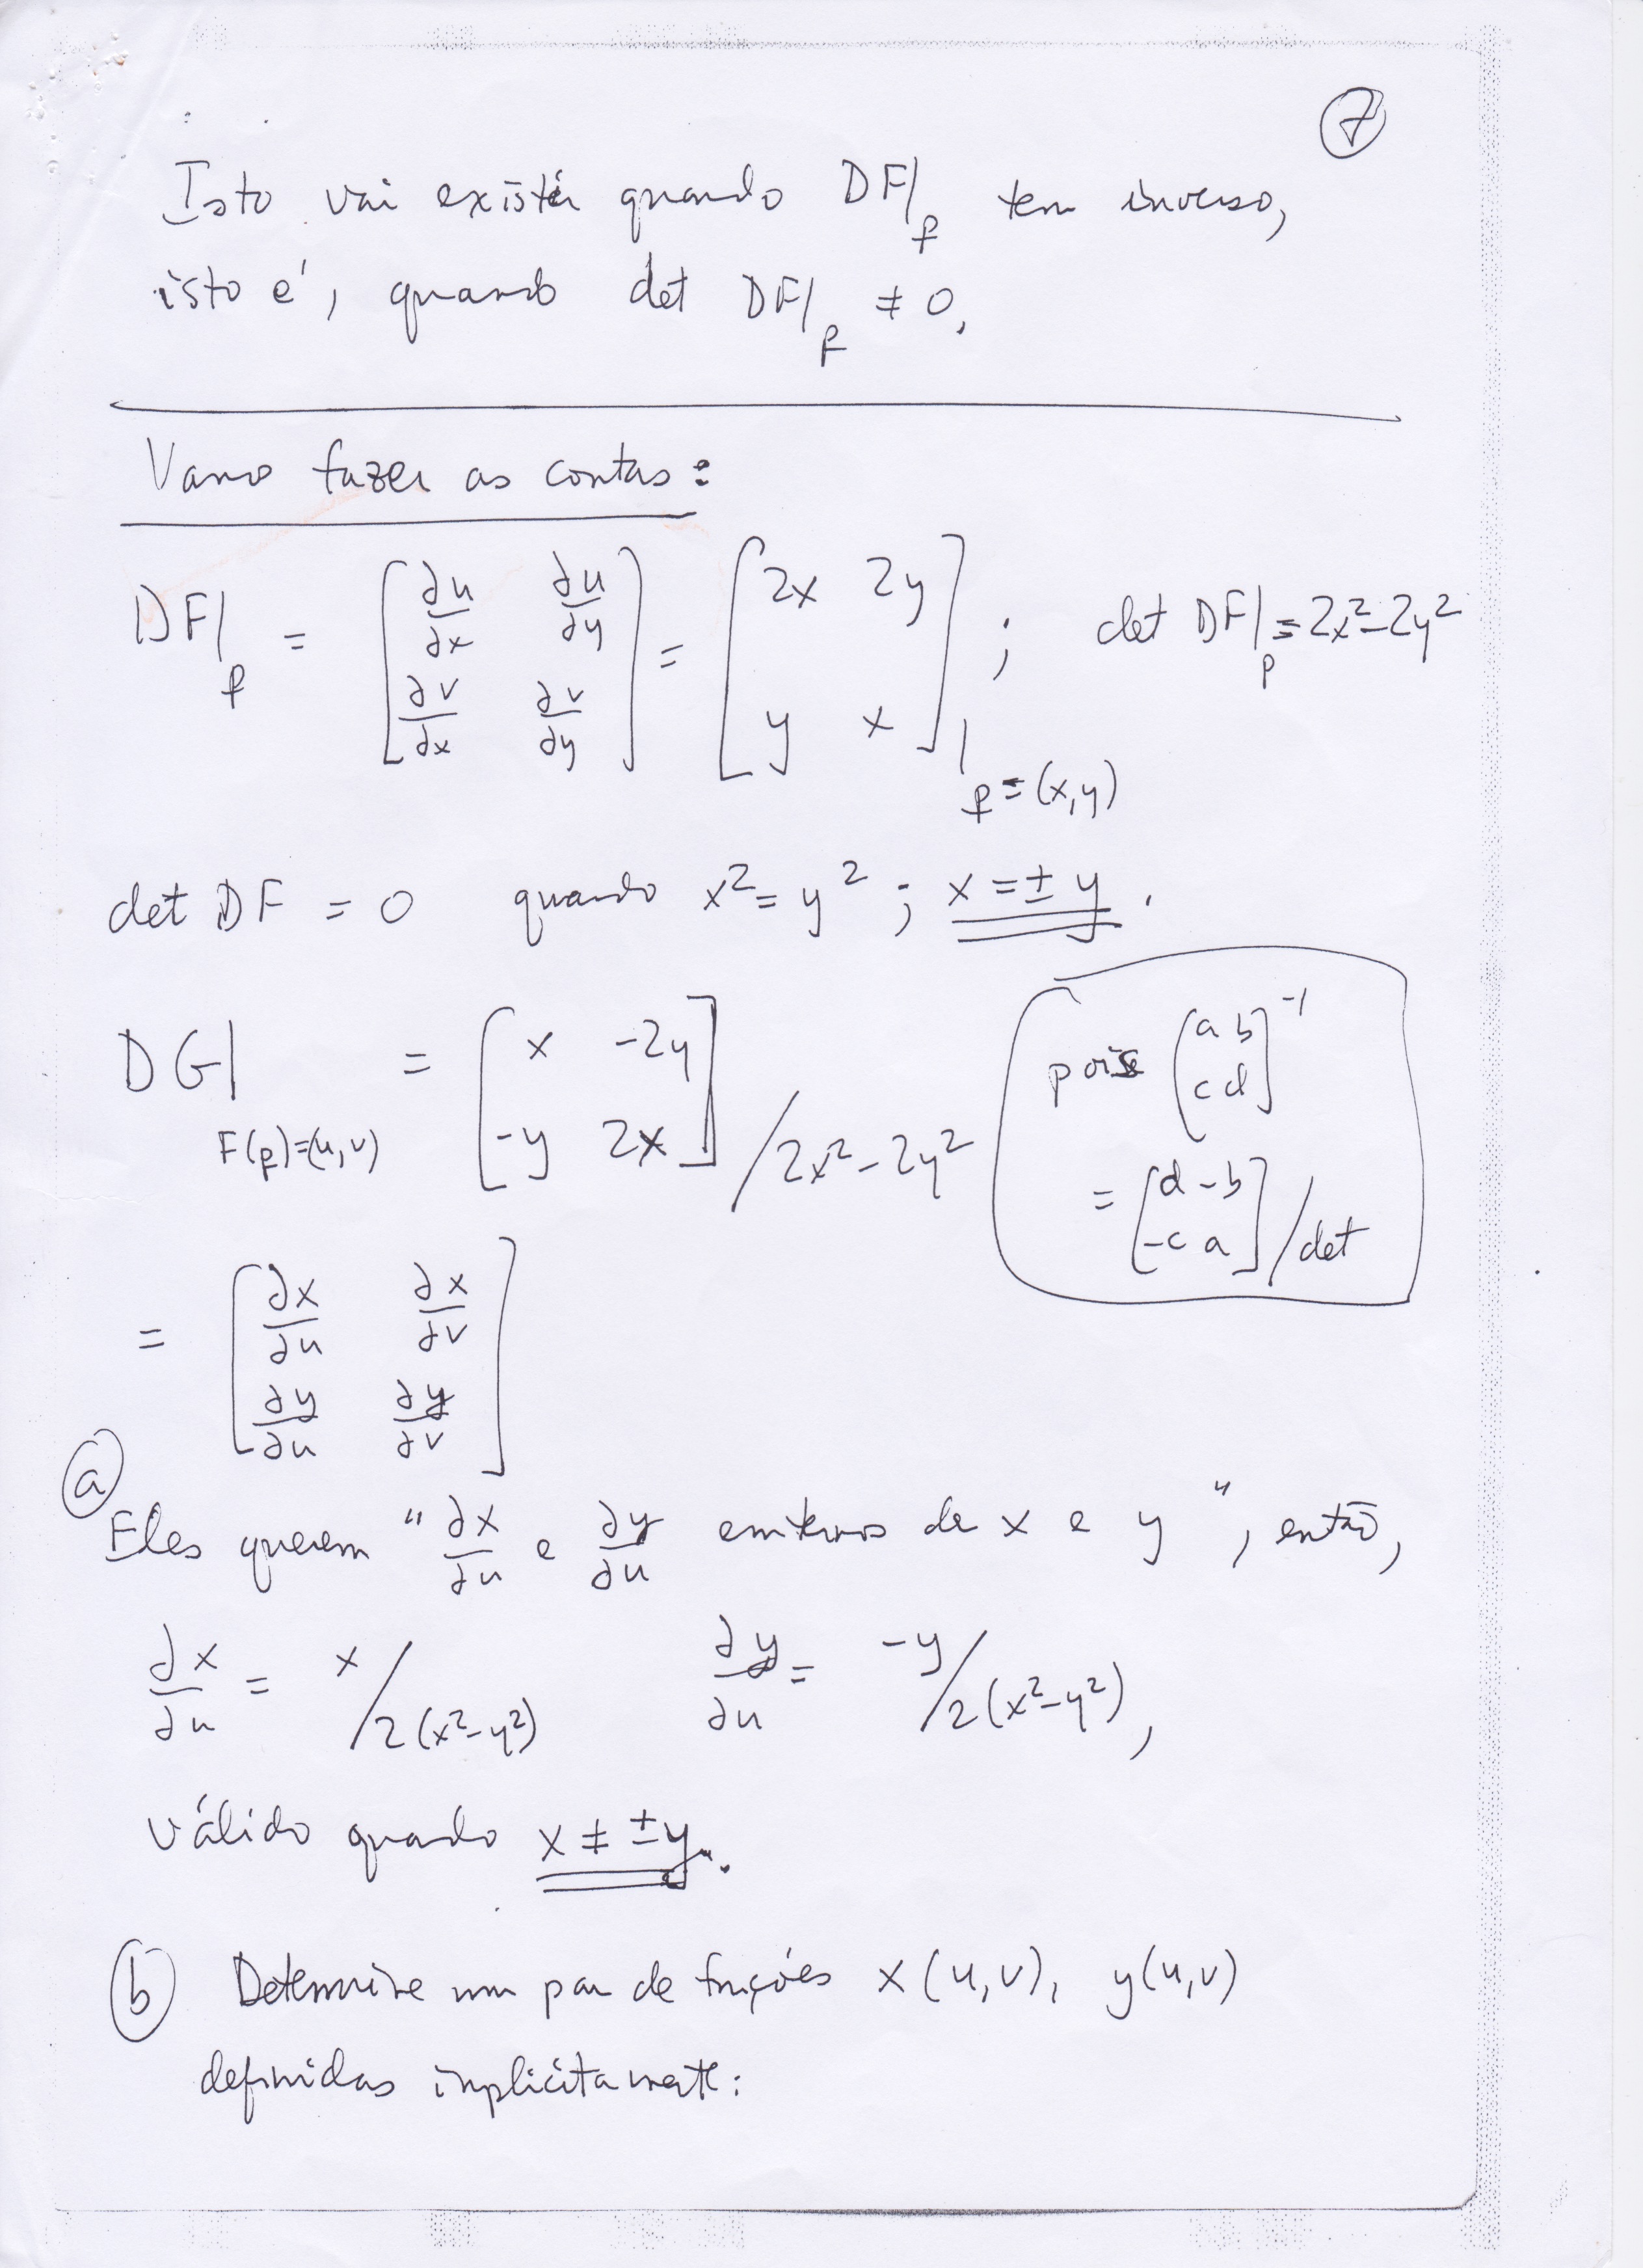 7
Isto vai existir quando DF|_p tem inverso,
isto é, quando det DF|_p ≠ 0.
Vamo fazer as contas:
DF|_p = [∂u/∂x ∂u/∂y; ∂v/∂x ∂v/∂y] = [2x 2y; y x]|_p=(x,y) ; det DF|_p = 2x²-2y²
det DF = 0 quando x² = y² ; x = ± y .
DG|_F(p)=(u,v) = [x -2y; -y 2x] / 2x²-2y²
pois [a b; c d]⁻¹
= [d -b; -c a] / det
= [∂x/∂u ∂x/∂v; ∂y/∂u ∂y/∂v]
a
Eles querem "∂x/∂u e ∂y/∂u em termos de x e y", então,
∂x/∂u = x / 2(x²-y²) ∂y/∂u = -y / 2(x²-y²),
válido quando x ≠ ±y.
b Determine um par de funções x(u,v), y(u,v)
definidas implicitamente: